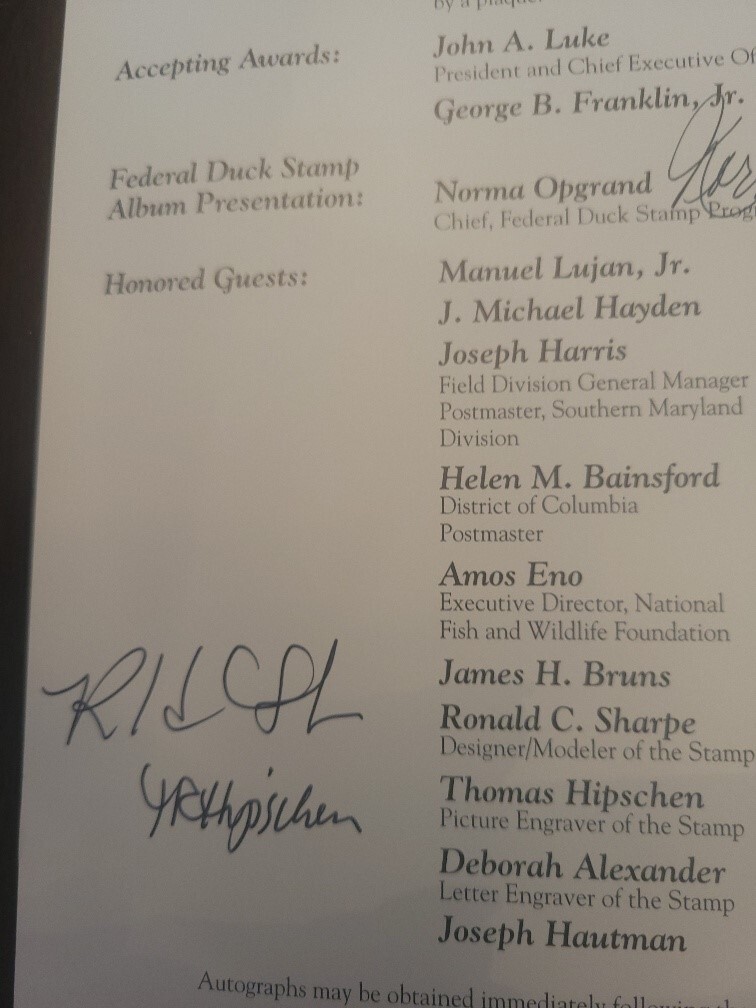 by a plaque.
Accepting Awards:
John A. Luke
President and Chief Executive Of
George B. Franklin, Jr.
Federal Duck Stamp
Album Presentation:
Norma Opgrand
Chief, Federal Duck Stamp Prog
Honored Guests:
Manuel Lujan, Jr.
J. Michael Hayden
Joseph Harris
Field Division General Manager
Postmaster, Southern Maryland
Division
Helen M. Bainsford
District of Columbia
Postmaster
Amos Eno
Executive Director, National
Fish and Wildlife Foundation
James H. Bruns
Ronald C. Sharpe
Designer/Modeler of the Stamp
Thomas Hipschen
Picture Engraver of the Stamp
Hipschen
Deborah Alexander
Letter Engraver of the Stamp
Joseph Hautman
Autographs may be obtained immediately following the